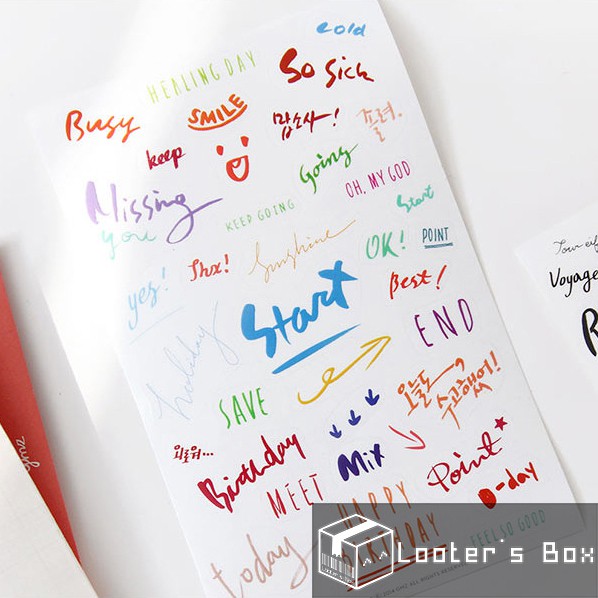 cold
HEALING DAY
So Sick
Busy
SMILE
맙소사!
졸려.
keep
Going
OH, MY GOD
Missing
you
KEEP GOING
Start
yes!
Thx!
Sunshine
OK!
POINT
Best!
Start
holiday
END
SAVE
오늘도
수고했어!
외로워...
Birthday
Mix
Point
MEET
D-day
HAPPY
BIRTHDAY
today
FEEL SO GOOD
Looter's Box
Looter's Box
Voyage